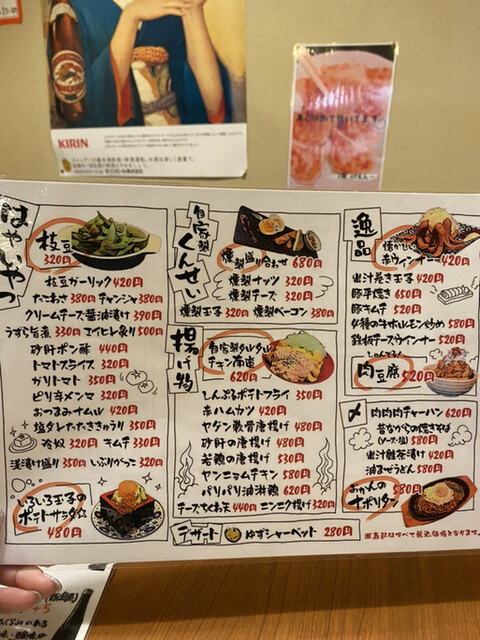 KIRIN
はやいやつ
枝豆
320円
枝豆ガーリック 420円
たこわさ 380円 チャンジャ 380円
クリームチーズ醤油漬け 390円
うずら旨煮 330円 エイヒレ炙り 500円
砂肝ポン酢 440円
トマトスライス 320円
ガリトマト 350円
ピリ辛メンマ 320円
おつまみナムル 420円
塩ダレたたききゅうり 350円
冷奴 320円 キムチ 330円
浅漬け盛り 350円 いぶりがっこ 320円
いろいろ玉子の
ポテトサラダ
480円
自家製くんせい
燻製盛り合わせ 680円
燻製ナッツ 320円
燻製チーズ 320円
燻製玉子 320円 燻製ベーコン 380円
揚げ物
自家製タルタル
チキン南蛮
620円
しんぷるポテトフライ 350円
赤ハムカツ 420円
ヤゲン軟骨唐揚げ 480円
砂肝の唐揚げ 480円
若鶏の唐揚げ 530円
ヤンニョムチキン 580円
パリパリ油淋鶏 620円
チーズちくわ天 440円 ニンニク揚げ 320円
デザート ゆずシャーベット 280円
逸品
懐かしい
赤ウインナー 420円
出汁巻き玉子 420円
豚平焼き 650円
豚キムチ 520円
4種の牛ホルモン炒め 580円
鉄板チーズウインナー 520円
しゅんでる!
肉豆腐 520円
〆
肉肉肉チャーハン 620円
昔ながらの焼きそば
(ソース・塩) 580円
出汁雑茶漬け 420円
油まぜうどん 580円
おかんの
ナポリタン 580円
※表記はすべて税込価格となります。